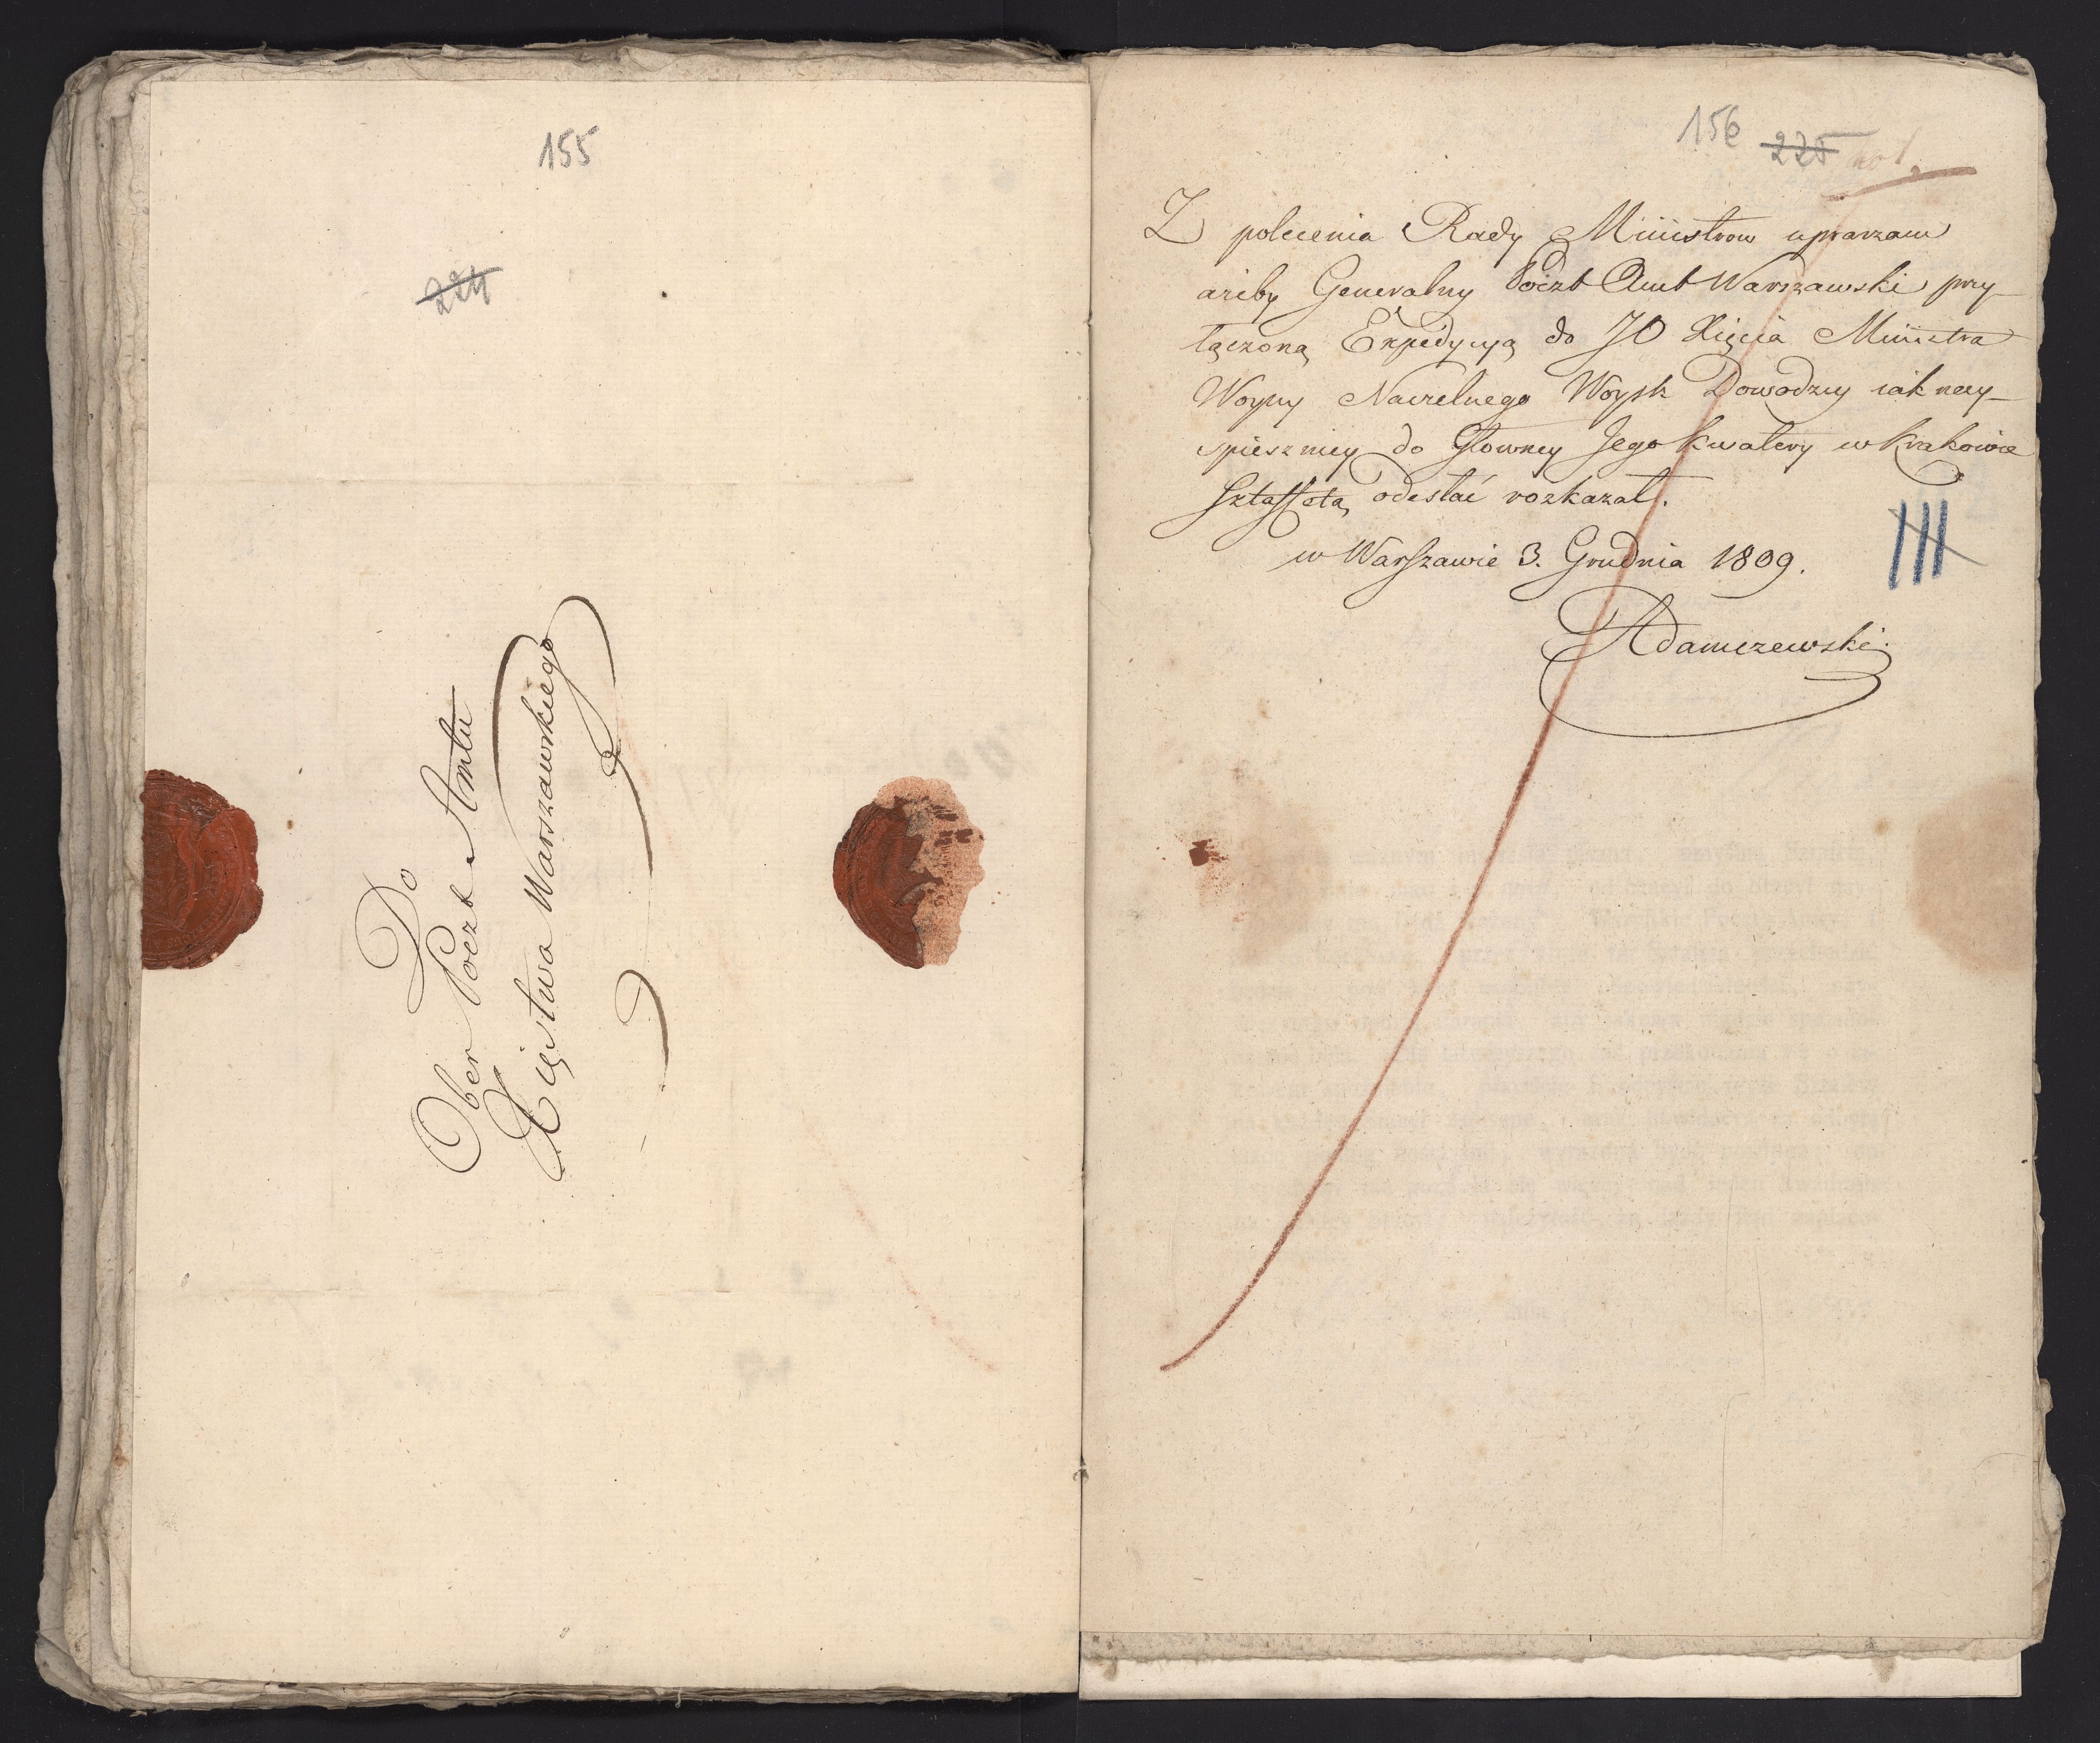 155
224
Do
Ober Poczt Amtu
Xięstwa Warszawskiego
156
225
Z polecenia Rady Ministrow upraszam
ażeby Generalny Poczt Amt Warszawski przy-
łączoną Expedycyą do JO Xięcia Ministra
Woyny Naczelnego Woysk Dowodzcy iak nay-
spieszniey do Głowney Jego kwatery w Krakowie
sztaffetą odesłać rozkazał.
w Warszawie 3. Grudnia 1809.
Adamczewski.